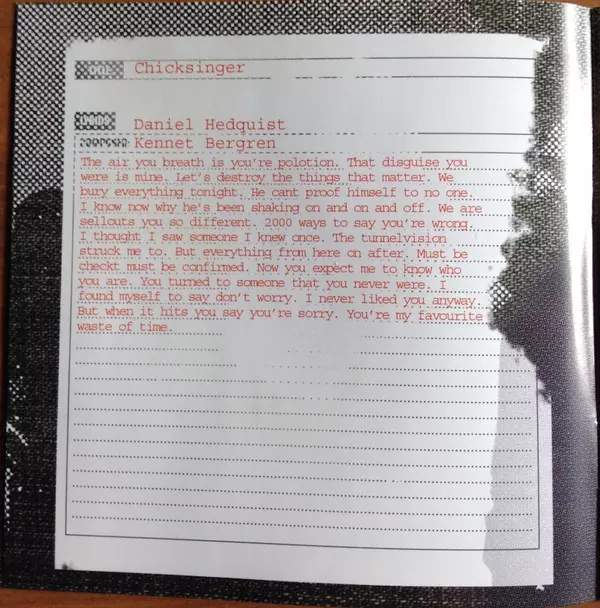 TITLE Chicksinger
WORDS Daniel Hedquist
COMPOSER Kennet Bergren
The air you breath is you're polotion. That disguise you
were is mine. Let's destroy the things that matter. We
bury everything tonight. He cant proof himself to no one.
I know now why he's been shaking on and on and off. We are
sellouts you so different. 2000 ways to say you're wrong.
I thought I saw someone I knew once. The tunnelvision
struck me to. But everything from here on after. Must be
checkt must be confirmed. Now you expect me to know who
you are. You turned to someone that you never were. I
found myself to say don't worry. I never liked you anyway.
But when it hits you say you're sorry. You're my favourite
waste of time.